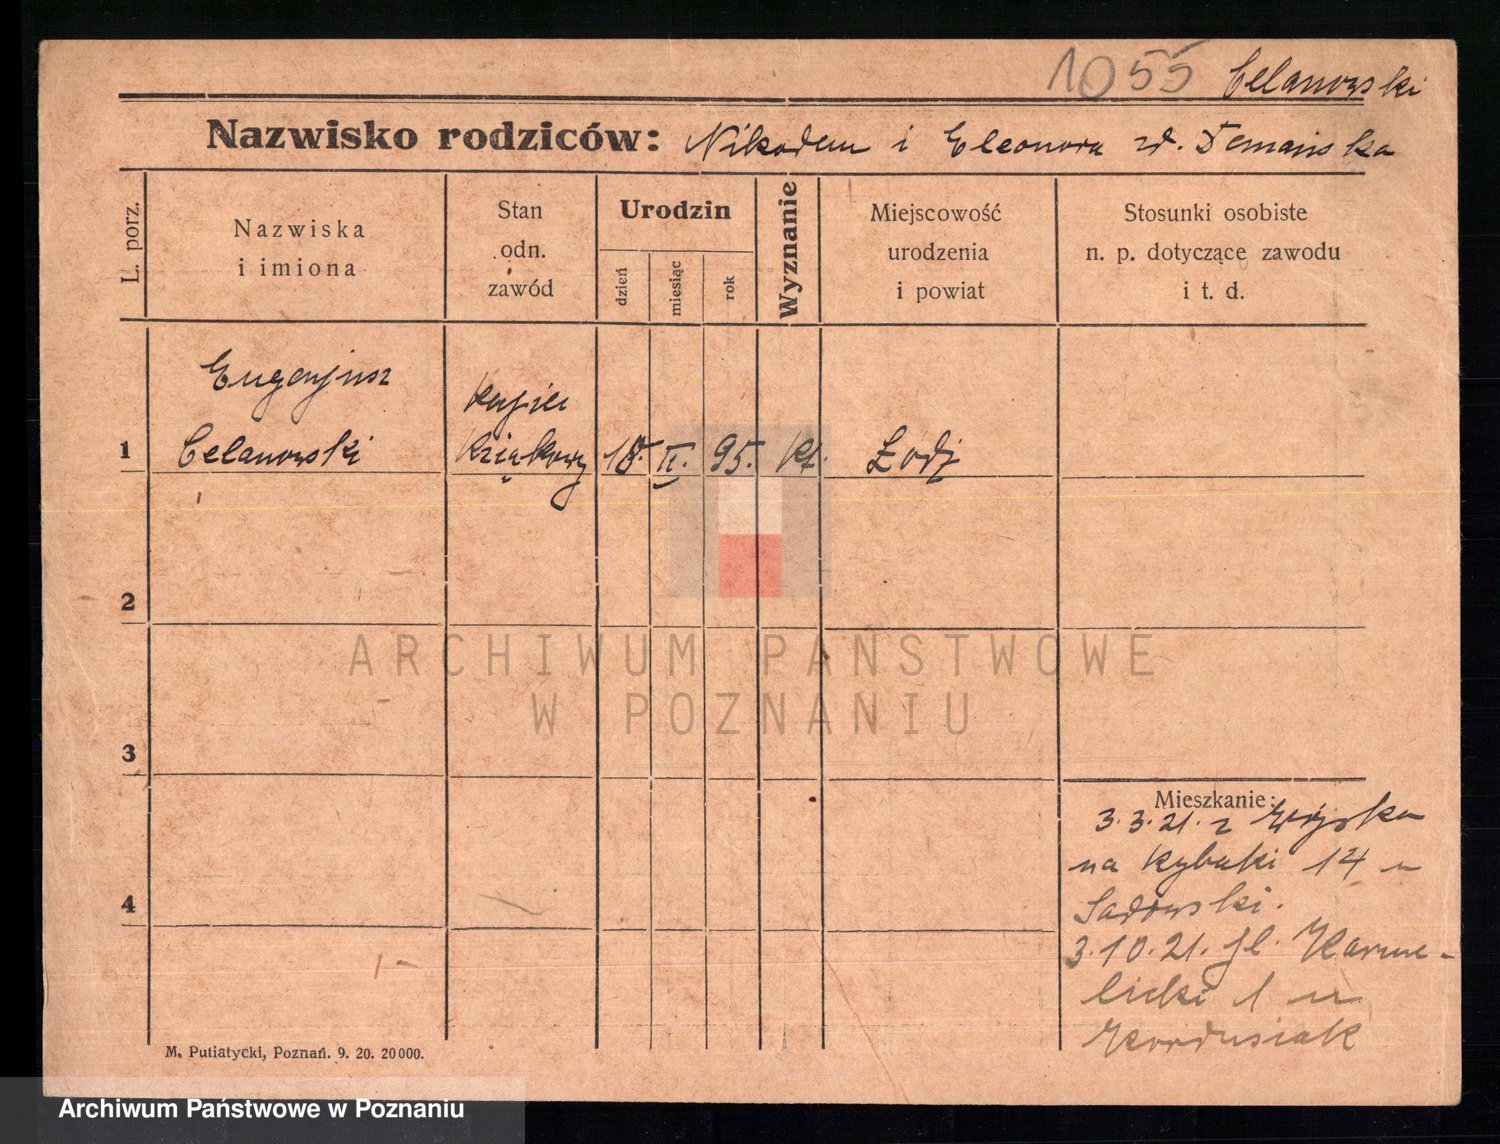 1055 Celanowski
Nazwisko rodziców: Nikodem i Eleonora zd. Temańska
L. porz.
Nazwiska
i imiona
Stan
odn.
zawód
Urodzin
dzień
miesiąc
rok
Wyznanie
Miejscowość
urodzenia
i powiat
Stosunki osobiste
n. p. dotyczące zawodu
i t. d.
1
Eugenjusz
Celanowski
Kupiec
18. II. 95. Kt.
Łodź
2
3
4
ARCHIWUM PAŃSTWOWE
W POZNANIU
Mieszkanie:
3.3.21. z Wojska
na Rybaki 14 u
Sadowski.
3.10.21. Pl. Karme-
licki 1 u
Kordusiak
M. Putiatycki, Poznań. 9. 20. 20000.
Archiwum Państwowe w Poznaniu